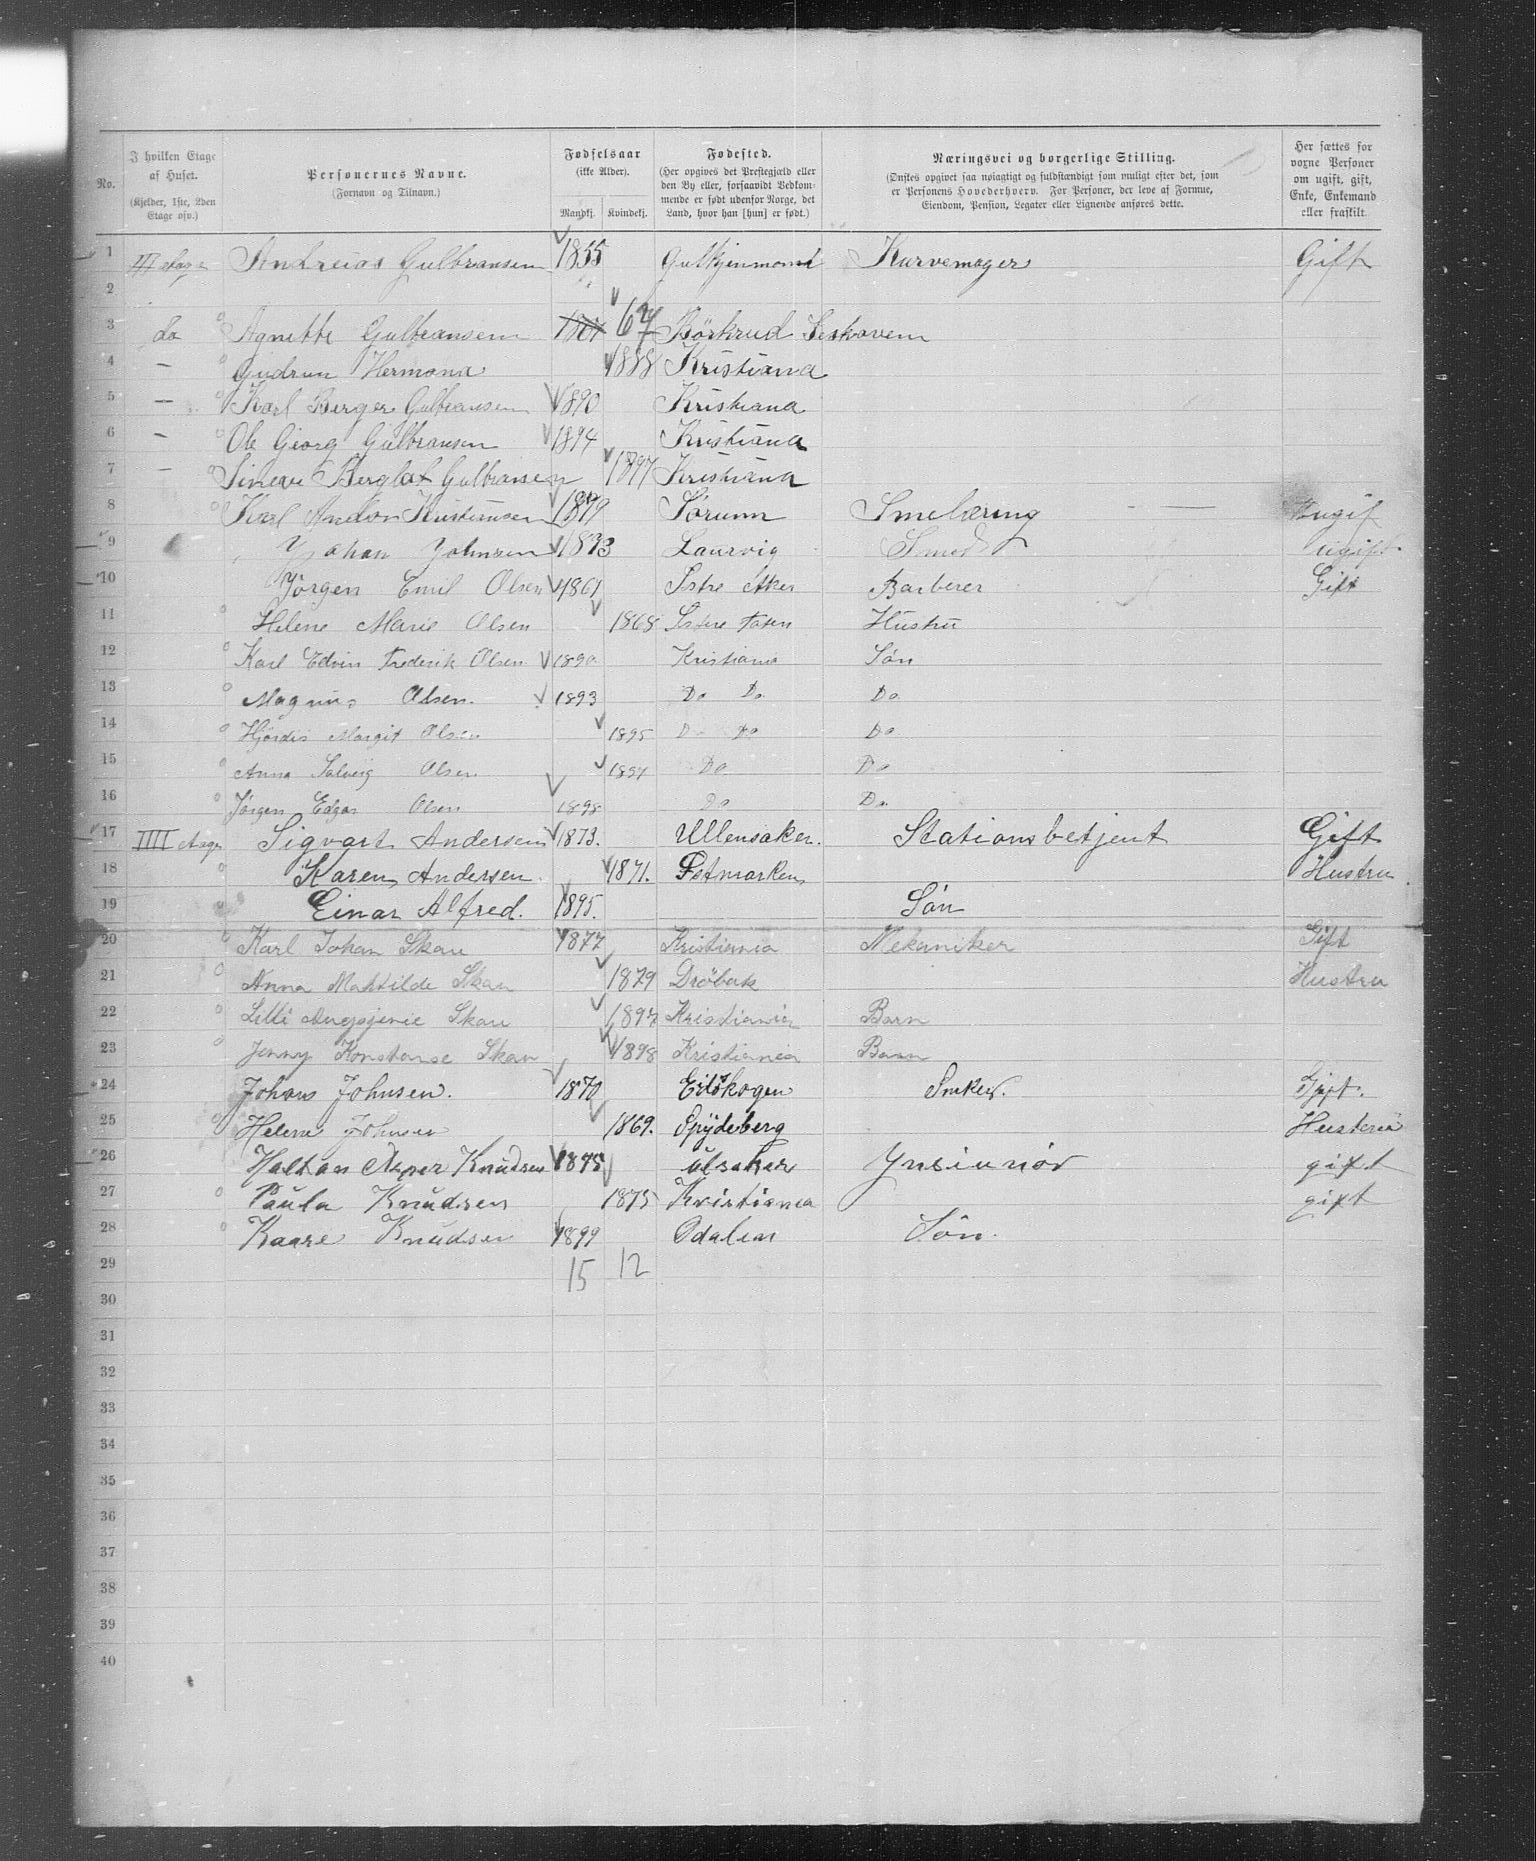 No. | I hvilken Etage af Huset. (Kjelder, 1ste, 2den Etage osv.) | Personernes Navne. (Fornavn og Tilnavn.) | Fødselsaar (ikke Alder). Mandkj. | Kvindekj. | Fødested. (Her opgives det Præstegjæld eller den By eller, forsaavidt Vedkommende er født udenfor Norge, det Land, hvor han [hun] er født.) | Næringsvei og borgerlige Stilling. (Ønskes opgivet saa nøiagtigt og fuldstændigt som muligt efter det, som er Personens Hovederhverv. For Personer, der leve af Formue, Eiendom, Pension, Legater eller Lignende anføres dette. | Her sættes for voxne Personer om ugift, gift, Enke, Enkemand eller fraskilt.
1 Andreas Gulbransen 1855 Kurvemager Gift
2
3 do Agnette Gulbransen 67
4 — Gudrun Hermona 1888 Kristiana
5 — Karl Berger Gulbransen 1890 Kristiana
6 — Ole Georg Gulbransen 1894 Kristiana
7 — Gulbransen 1897 Kristiana
8 Karl Anton Kristiansen 1879 Sørum Smelæring ugif
9 Johan Johnsen 1873 Laurvig Smed ugift
10 Jörgen Emil Olsen 1861 Østre Aker Barberer Gift
11 Helene Marie Olsen 1868 Østre Toten Hustru
12 Karl Edvin Frederik Olsen 1890 Kristiania Søn
13 Magnus Olsen. 1893 Do Do Do
14 Hjørdis Margit Olsen 1895 D Do Do
15 Anna Solveig Olsen 1897 Do Do
16 Jørgen Edgar Olsen 1898 Do Do
17 IIII etage Sigvart Andersen 1873. Ullensaker. Stationsbetjent Gift
18 Karen Andersen. 1871. Østmarken Hustru
19 Einar Alfred. 1895. Søn
20 Karl Johan Skau 1877 Kristiania Mekaniker Gift
21 Anna Mahtilde Skau 1879 Drøbak Hustru
22 Lilli Skau 1897 Kristiania Barn
23 Jenny Konstanse Skau 1898 Kristiania Barn
24 Johan Johnsen. 1870 Eidskogen Snker. Gift.
25 Helene Johnsen 1869. Spydeberg Hustru
26 Halfan Knudsen 1875 Ulsaker gift
27 Paula Knudsen 1875 Kristiania gift
28 Kaare Knudsen 1899 Odalen Søn.
29 15 12
30
31
32
33
34
35
36
37
38
39
40